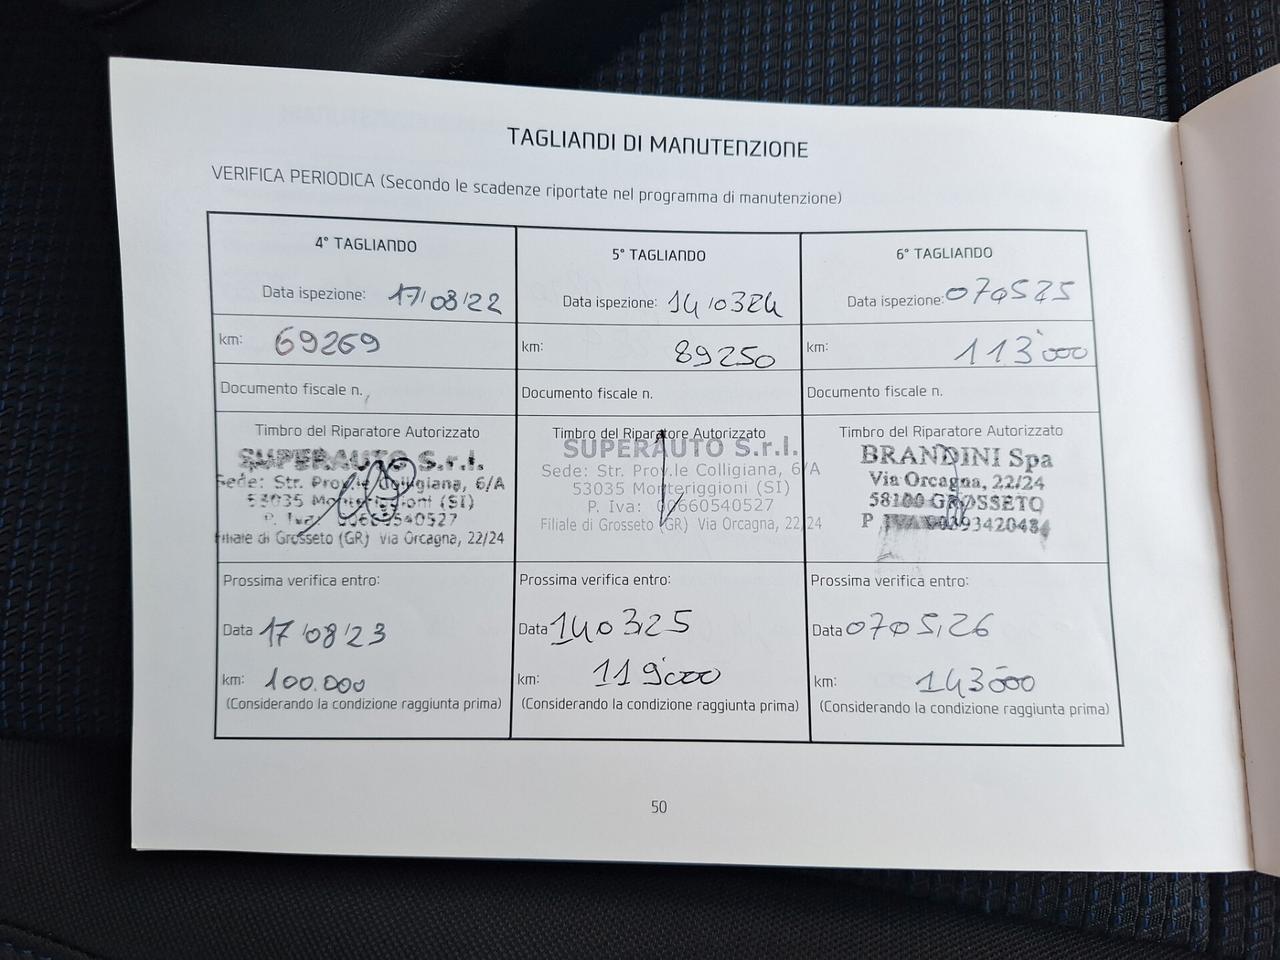 TAGLIANDI DI MANUTENZIONE
VERIFICA PERIODICA (Secondo le scadenze riportate nel programma di manutenzione)
4° TAGLIANDO
Data ispezione: 17/08/22
km: 69269
Documento fiscale n.
Timbro del Riparatore Autorizzato
SUPERAUTO S.r.l.
Sede: Str. Prov.le Colligiana, 6/A
53035 Monteriggioni (SI)
P. Iva: 00660540527
Filiale di Grosseto (GR) Via Orcagna, 22/24
Prossima verifica entro:
Data 17/08/23
km: 100.000
(Considerando la condizione raggiunta prima)
5° TAGLIANDO
Data ispezione: 14/0324
km: 89250
Documento fiscale n.
Timbro del Riparatore Autorizzato
SUPERAUTO S.r.l.
Sede: Str. Prov.le Colligiana, 6/A
53035 Monteriggioni (SI)
P. Iva: 00660540527
Filiale di Grosseto (GR) Via Orcagna, 22/24
Prossima verifica entro:
Data 140325
km: 119'000
(Considerando la condizione raggiunta prima)
6° TAGLIANDO
Data ispezione: 070525
km: 113'000
Documento fiscale n.
Timbro del Riparatore Autorizzato
BRANDINI Spa
Via Orcagna, 22/24
58100 GROSSETO
P IVA
Prossima verifica entro:
Data 0705,26
km: 143000
(Considerando la condizione raggiunta prima)
50